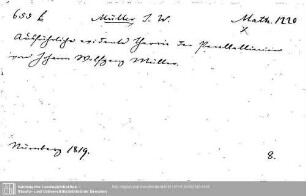 653 b Müller, J. W. Math. 1220
x
Ausführliche evidente Theorie der Parallellinien
von Johann Wolfgang Müller.
Nürnberg 1819. 8.
Sächsische Landesbibliothek -
Staats- und Universitätsbibliothek Dresden